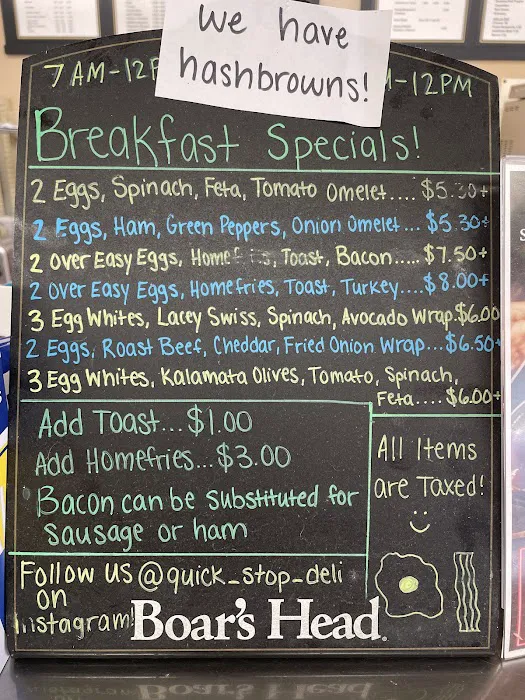 we have
hashbrowns!
7 AM-12P
-12PM
Breakfast Specials!
2 Eggs, Spinach, Feta, Tomato Omelet.... $5.30+
2 Eggs, Ham, Green Peppers, Onion Omelet... $5.30+
2 over Easy Eggs, Homefries, Toast, Bacon..... $7.50+
2 over Easy Eggs, Homefries, Toast, Turkey.... $8.00+
3 Egg Whites, Lacey Swiss, Spinach, Avocado Wrap.$6.00
2 Eggs, Roast Beef, Cheddar, Fried Onion Wrap...$6.50+
3 Egg Whites, Kalamata Olives, Tomato, Spinach,
Feta.... $6.00+
Add Toast... $1.00
Add Homefries... $3.00
Bacon can be substituted for
sausage or ham
All Items
are Taxed!
Follow us @quick_stop_deli
on
instagram!
Boar's Head